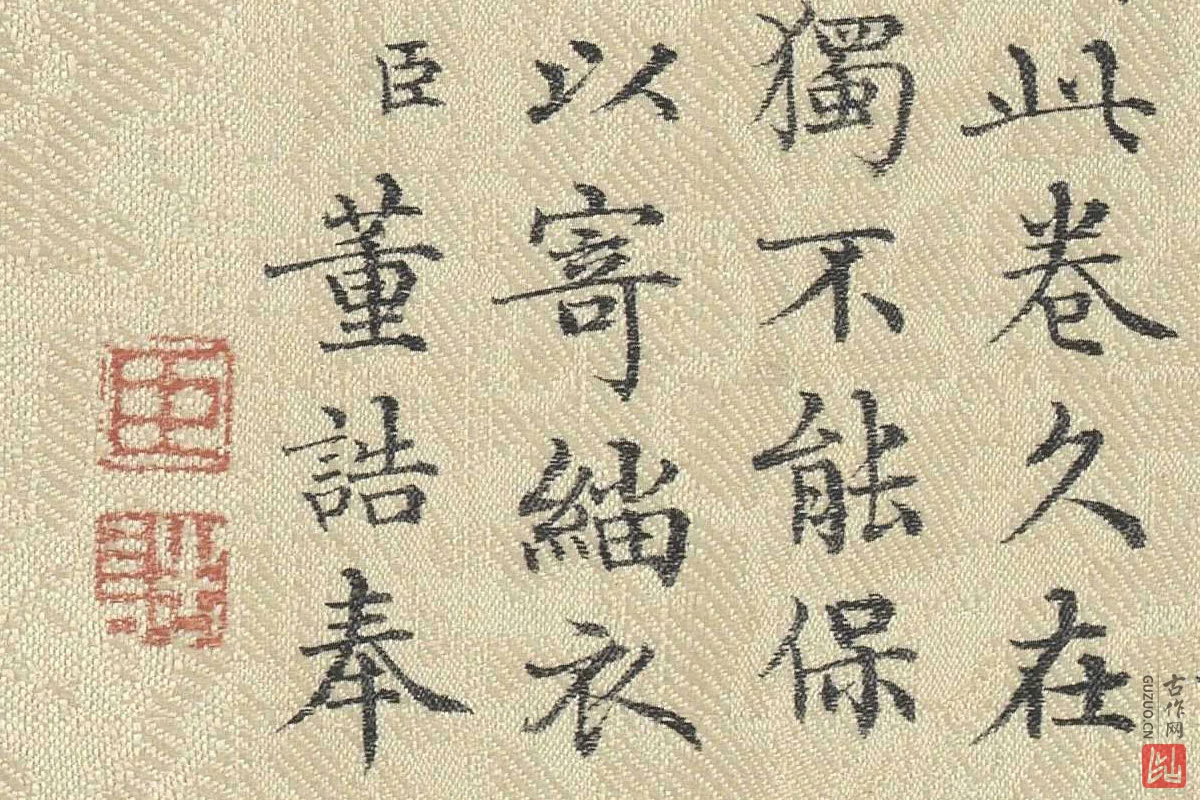 此卷久在
獨不能保
以寄緇衣
臣董誥奉
臣
誥
古作网
GUZUO.CN